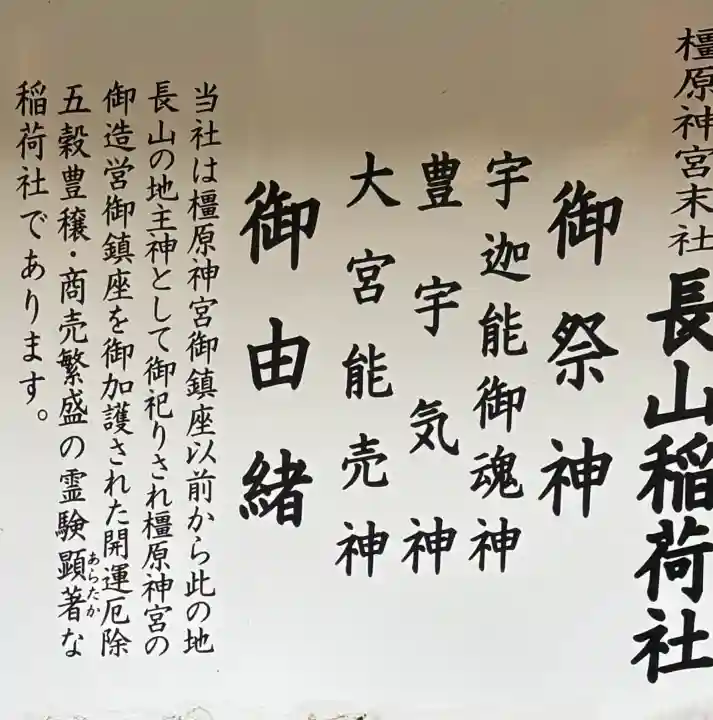 橿原神宮末社
長山稲荷社
御祭神
宇迦能御魂神
豊宇気神
大宮能売神
御由緒
当社は橿原神宮御鎮座以前から此の地
長山の地主神として御祀りされ橿原神宮の
御造営御鎮座を御加護された開運厄除
五穀豊穣・商売繁盛の霊験顕著な
あらたか
稲荷社であります。